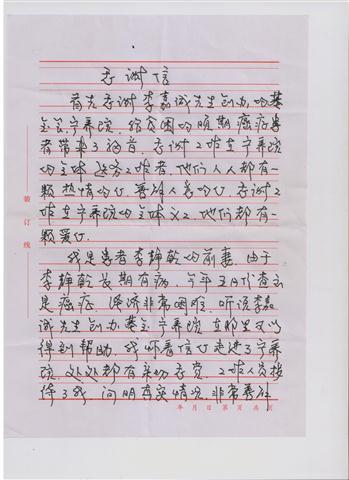 感谢信
首先感谢李嘉诚先生创办的基
金会宁养院，给贫困的晚期癌症患
者带来了福音，感谢工作在宁养院
的全体医务工作者，他们人人都有一
颗热情的心，善待人美的心感谢工
作在宁养院的全体义工他们都有一
颗爱心。
我是患者李静乾的前妻，由于
李静乾长期有病，今年五月份查出
是癌症，经济非常困难，听说李嘉
诚先生创办基金宁养院，在那里可以
得到帮助，我怀着信心走进了宁养
院，处处都有亲切感觉，工作人员接
待了我，问明真实情况，非常善待
装订线
年 月 日 第 页 共 页